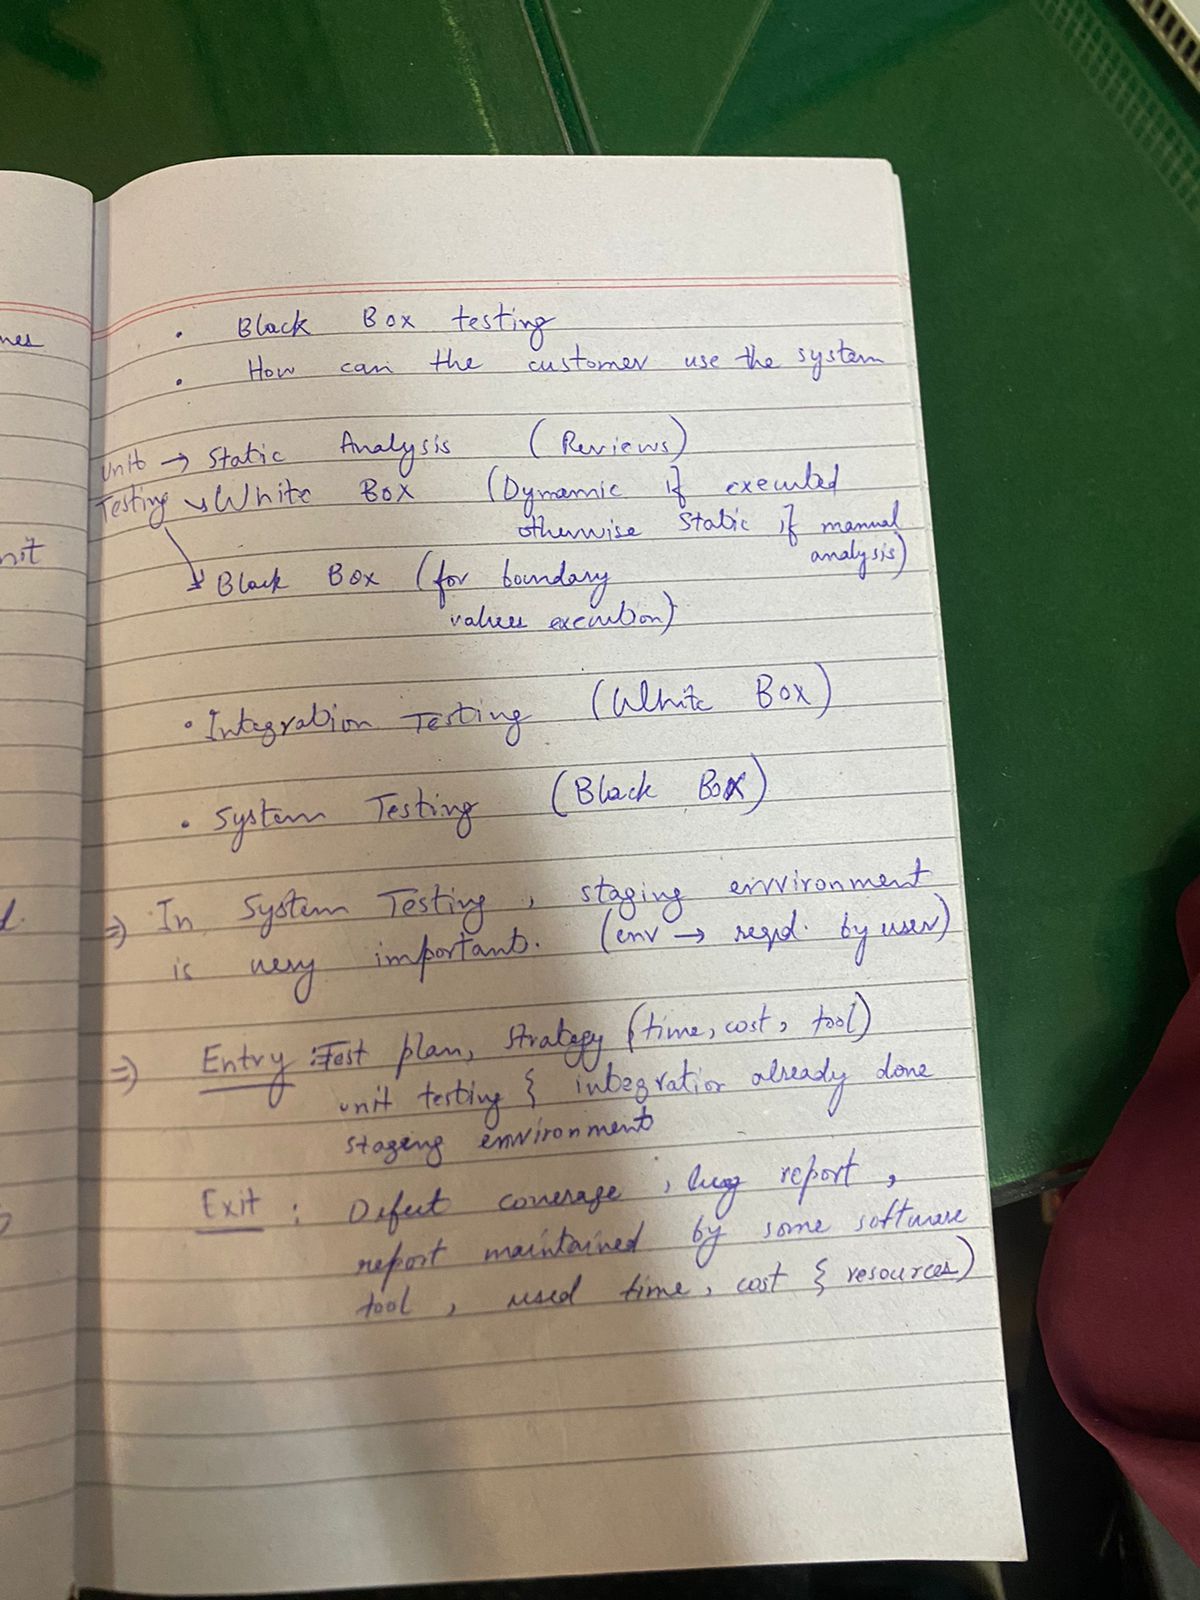 nes
nit
d.
• Black Box testing
• How can the customer use the system
Unit → Static Analysis (Reviews)
Testing ↘ White Box (Dynamic if executed
otherwise static if manual
analysis)
↘ Black Box (for boundary
values execution)
• Integration Testing (White Box)
• System Testing (Black Box)
⇒ In System Testing, staging environment
is very important. (env → reqd. by user)
⇒ Entry : Test plan, strategy (time, cost, tool)
unit testing & integration already done
staging environment
Exit : Defect coverage, bug report,
report maintained by some software
tool, used time, cost & resources)